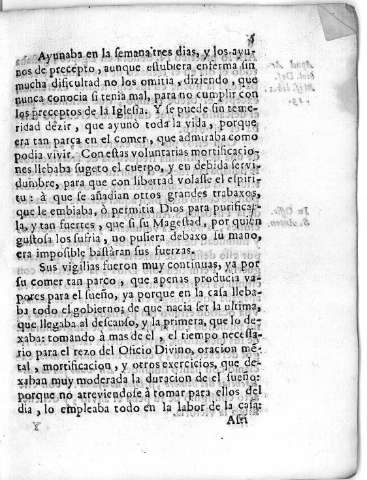 Ayunaba en la semana tres dias, y los ayu-
nos de precepto, aunque estubiera enferma sin
mucha dificultad no los omitia, diziendo, que
nunca conocia si tenia mal, para no cumplir con
los preceptos de la Iglesia. Y se puede sin teme-
ridad dezir, que ayunò toda la vida, porque
era tan parca en el comer, que admiraba como
podia vivir. Con estas voluntarias mortificacio-
nes llebaba sugeto el cuerpo, y en debida servi-
dumbre, para que con libertad volasse el espiri-
tu: à que se añadian otros grandes trabaxos,
que le embiaba, ò permitia Dios para purificar-
la, y tan fuertes, que si su Magestad, por quien
gustosa los sufria, no pusiera debaxo su mano,
era imposible bastàran sus fuerzas.
Sus vigilias fueron muy continuas, ya por
su comer tan parco, que apenas producia va-
pores para el sueño, ya porque en la casa lleba-
ba todo el gobierno; de que nacia ser la ultima,
que llegaba al descanso, y la primera, que lo de-
xaba: tomando à mas de èl, el tiempo necessa-
rio para el rezo del Oficio Divino, oracion mẽ-
tal, mortificacion, y otros exercicios, que de-
xaban muy moderada la duracion de el sueño:
porque no atreviendose à tomar para ellos del
dia, lo empleaba todo en la labor de la casa:
Y Assi